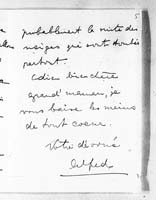 5
probablement la suite des
neiges qui sont tombées
partout.
Adieu bien chère
grand'maman, je
vous baise les mains
de tout coeur.
Votre dévoué
Alfred